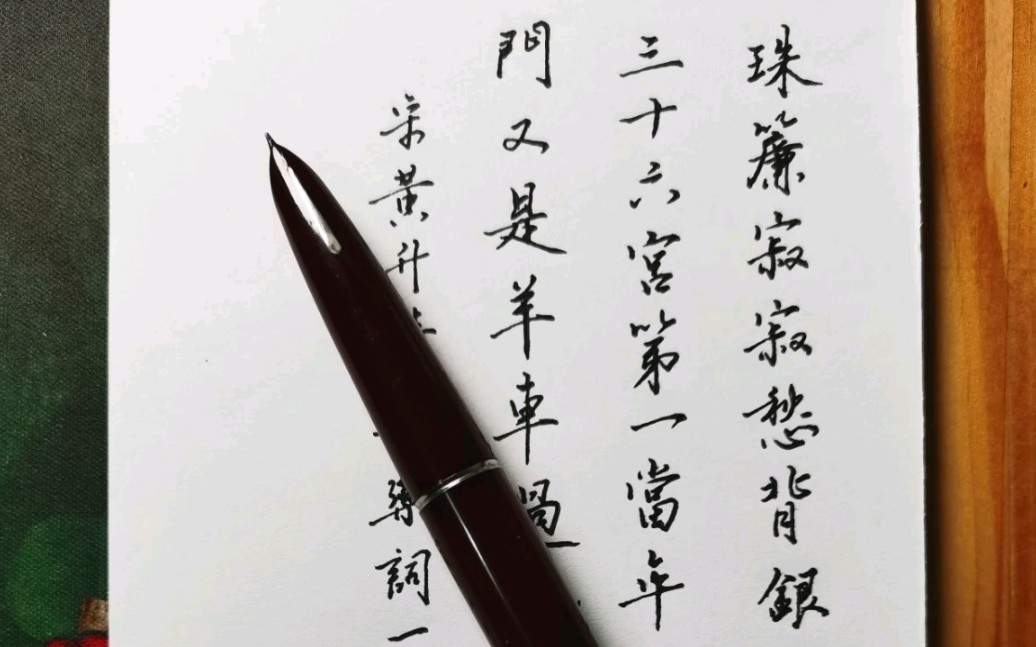 珠簾寂寂愁背銀
三十六宮第一當年
門又是羊車過
宋黃升
詞一